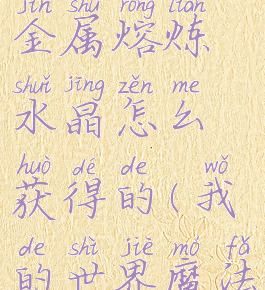 jīn shǔ róng liàn
金属熔炼
shuǐ jīng zěn me
水晶怎么
huò dé de wǒ
获得的(我
de shì jiè mó fǎ
的世界魔法